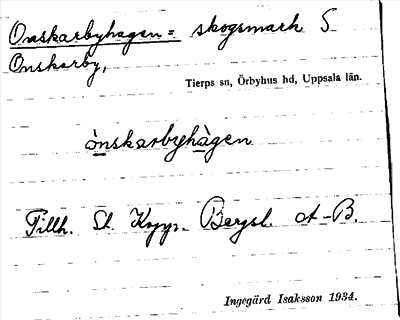 Onskarbyhagen = skogsmark S
Onskarby,
Tierps sn, Örbyhus hd, Uppsala län.
ònskarbyhàgen
Tillh. St. Kopp. Bergsl. A-B.
Ingegärd Isaksson 1934.